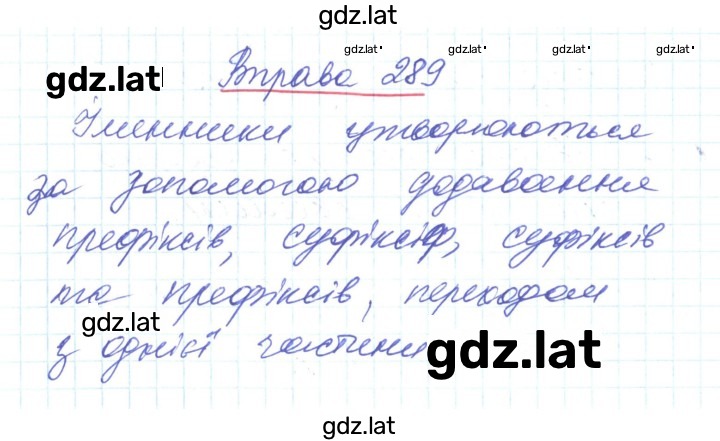 gdz.lat
gdz.lat gdz.lat gdz.lat gdz.lat
gdz.lat Вправа 289
Іменники утворюються
за допомогою додавання
префіксів, суфіксів, суфіксів
та префіксів, переходом
gdz.lat
з однієї частини gdz.lat
gdz.lat